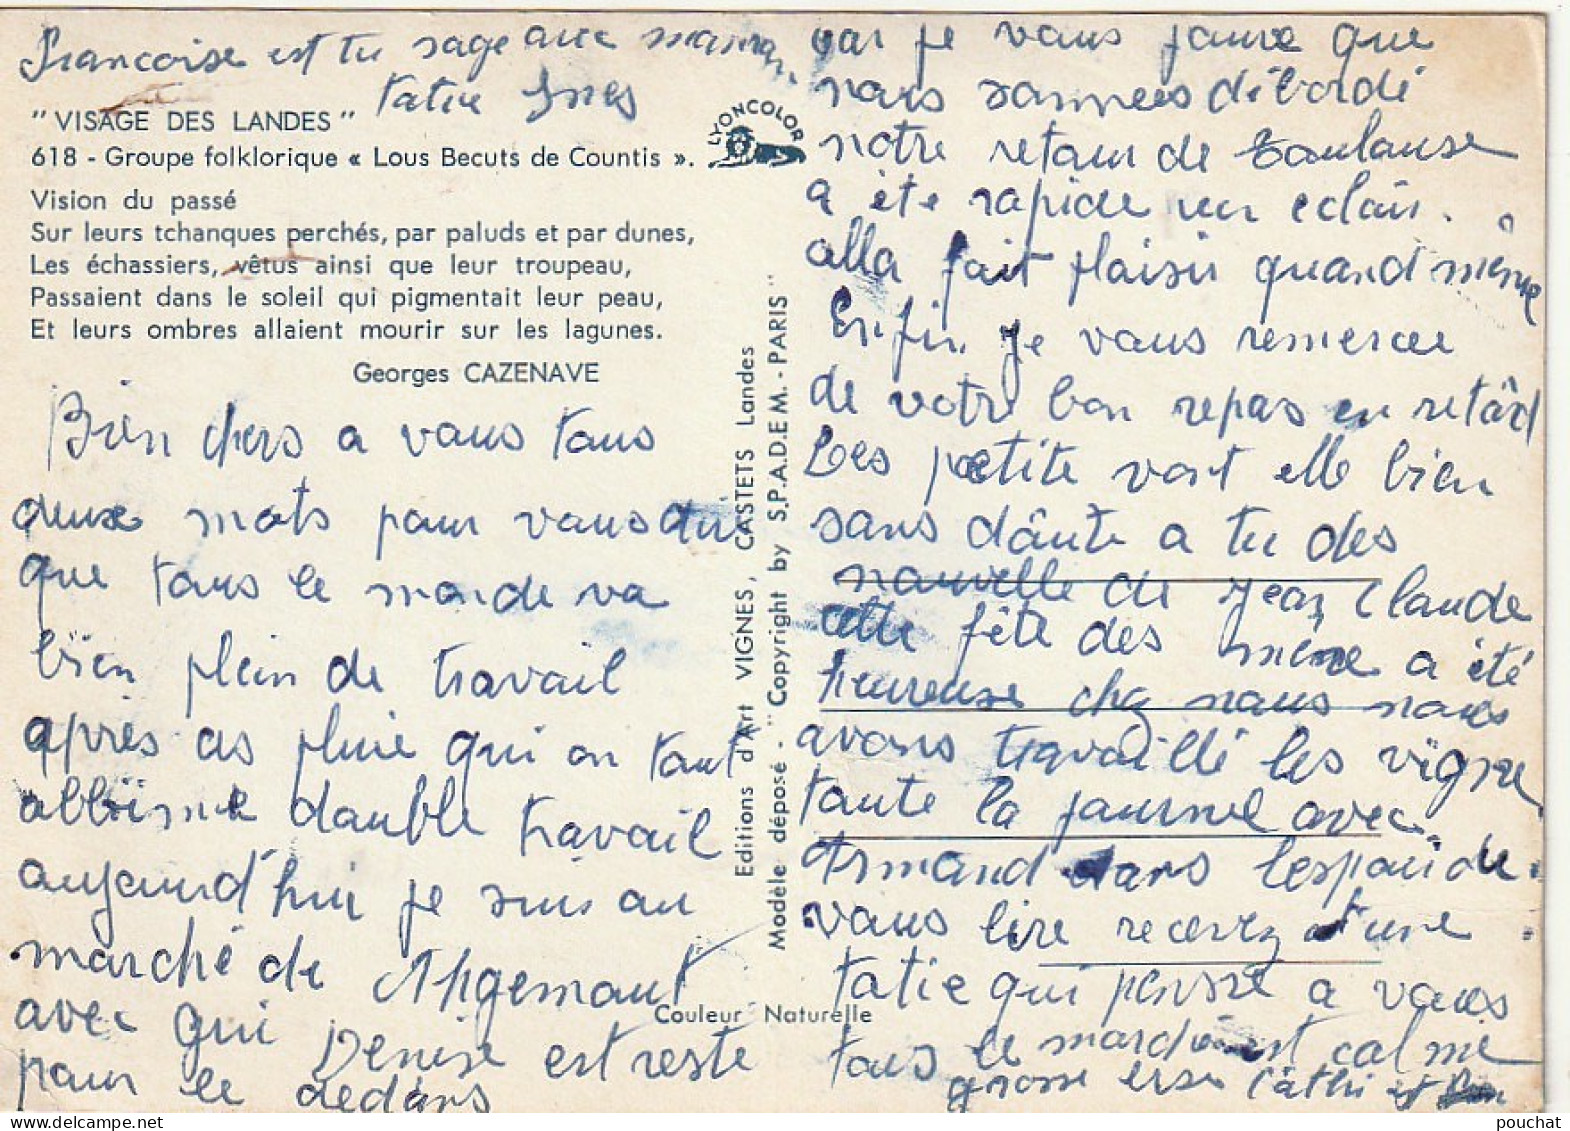 Francoise est tu sage avec maman
tatie Ines
"VISAGE DES LANDES"
618 - Groupe folklorique « Lous Becuts de Countis ».
LYONCOLOR
Vision du passé
Sur leurs tchanques perchés, par paluds et par dunes,
Les échassiers, vêtus ainsi que leur troupeau,
Passaient dans le soleil qui pigmentait leur peau,
Et leurs ombres allaient mourir sur les lagunes.
Georges CAZENAVE
Bien chers a vous tous
deux mots pour vous dire
que tous le monde va
bien plein de travail
après as pluie qui on tout
abbime double travail
aujourd'hui je suis au
marché de
avec qui Denise est reste
pour le dedans
Editions d'Art VIGNES, CASTETS Landes
Modèle déposé - "Copyright by S.P.A.D.E.M. - PARIS"
Couleur Naturelle
car je vous jure que
nous sommes débordé
notre retour de Toulouse
a été rapide un eclair.
alla fait plaisir quand même
Enfin je vous remercie
de votre bon repas en retard
Les petite vont elle bien
sans doute a tu des
nouvelle de Jean Claude
cette fête des mère a été
heureuse chez nous nous
avons travaillé les vigne
toute la journee avec
Armand dans lespoir de
vous lire recevez d'une
tatie qui pense a vous
tous le mardi est calme
grosse bise Cathi et
pouchat